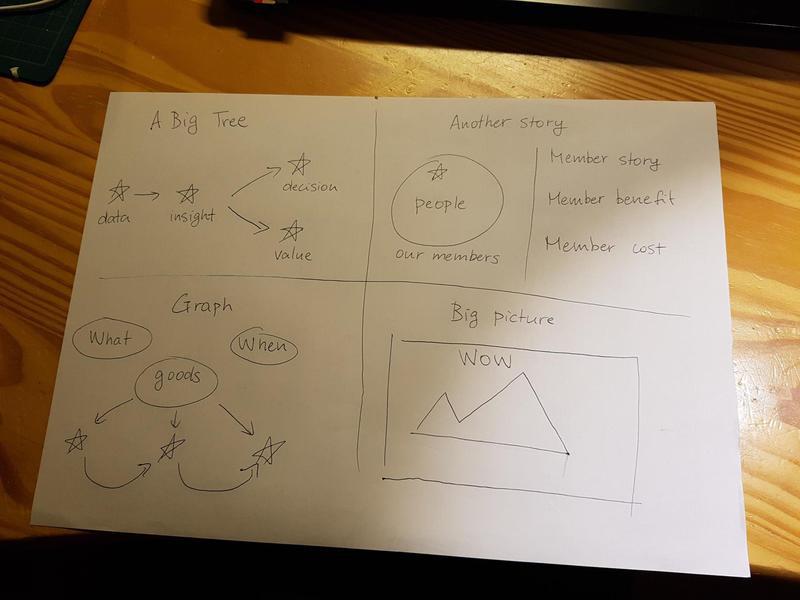 A Big Tree
data
insight
decision
value
Another story
people
our members
Member story
Member benefit
Member cost
Graph
What
When
goods
Big picture
WOW